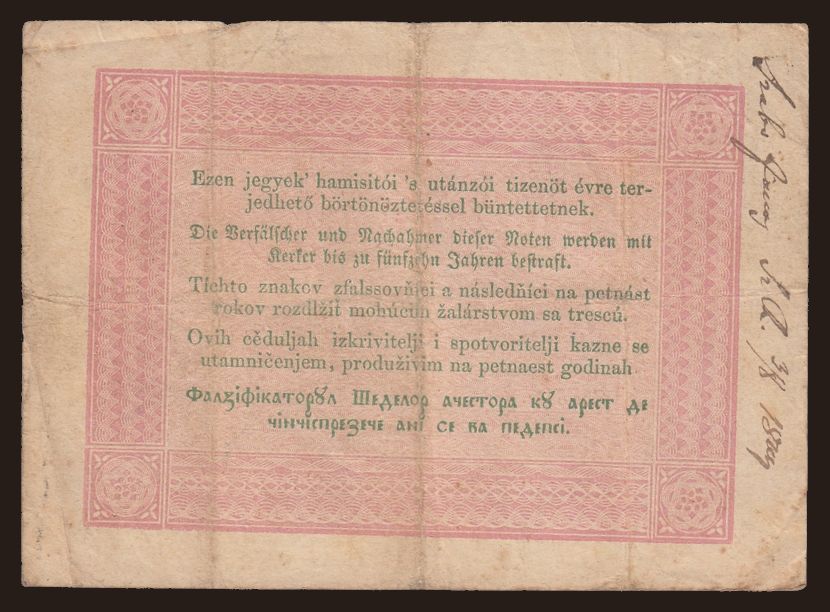 Ezen jegyek' hamisitói 's utánzói tizenöt évre ter-
jedhető börtönöztetéssel büntettetnek.
Die Verfälscher und Nachahmer dieser Noten werden mit
Kerker bis zu fünfzehn Jahren bestraft.
Tichto znakov zfalssovňíci a následňíci na petnást
rokov rozdlžiť mohúcim žalárstvom sa trescú.
Ovih cěduljah izkrivitelji i spotvoritelji kazne se
utamničenjem, produživim na petnaest godinah
Фалꙁіфікаторꙋл Шеделор ачестора кꙋ арест де
чінчіспреꙁече ані се ва педепсі.